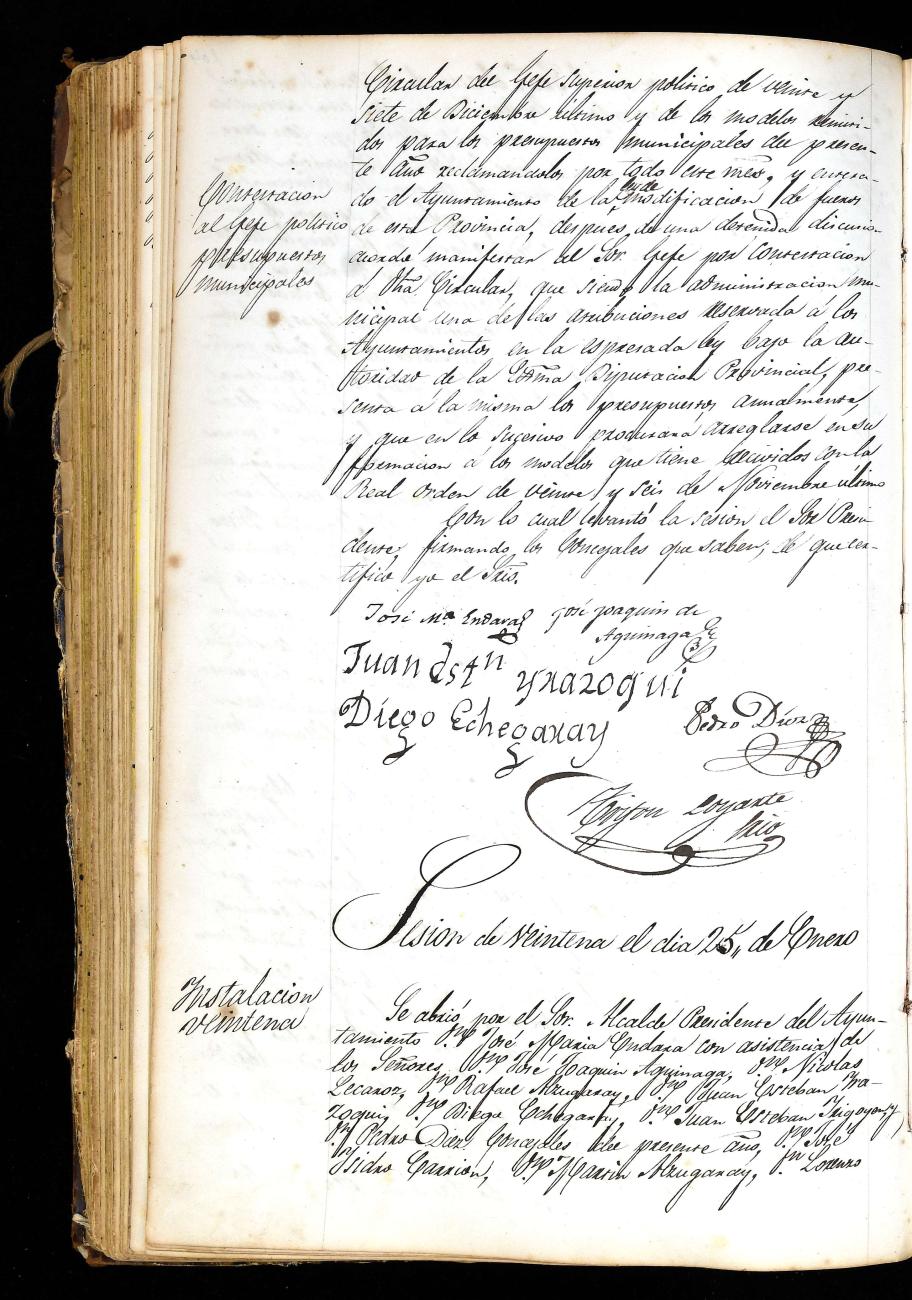 Circular del Gefe superior politico de veinte y
siete de Diciembre último y de los modelos remiti-
dos para los presupuestos municipales del presen-
te año reclamandolos por todo este mes, y entera-
do el Ayuntamiento de la ley de modificacion de fueros
de esta Provincia, despues de una detenida discusion
acordó manifestar al Sor. Gefe por contestacion
á dha. Circular, que siendo la administracion mu-
nicipal una de las atribuciones reservada á los
Ayuntamientos en la espresada ley bajo la au-
toridad de la Exma. Diputacion Provincial, pre-
senta á la misma los presupuestos anualmente,
y que en lo sucesivo procurará arreglarse en su
formacion á los modelos que tiene recividos con la
Real orden de veinte y seis de Noviembre último
Con lo cual levantó la sesion el Sor Presi-
dente, firmando los Concejales que saben, de que cer-
tifico yo el Srio.
Contestacion
al Gefe politico
presupuestos
municipales
José Ma. Endara
José Joaquin de
Aguinaga
Juan Estn yrazoqui
Diego Echegaray
Pedro Diez
Loyarte
Srio
Sesion de veintena el dia 25,, de Enero
Instalacion
veintena
Se abrió por el Sor. Alcalde Presidente del Ayun-
tamiento Dn. José Maria Endara con asistencia de
los Señores Dn. José Joaquin Aguinaga, Dn. Nicolas
Lecaroz, Dn. Rafael Alzugaray, Dn. Juan Esteban Yra-
zoqui, Dn. Diego Echegaray, Dn. Juan Esteban Yrigoyen, y
Dn. Pedro Diez Concejales del presente año, Dn. José
Isidro Carrion, Dn. Martin Alzugaray, Dn. Lorenzo